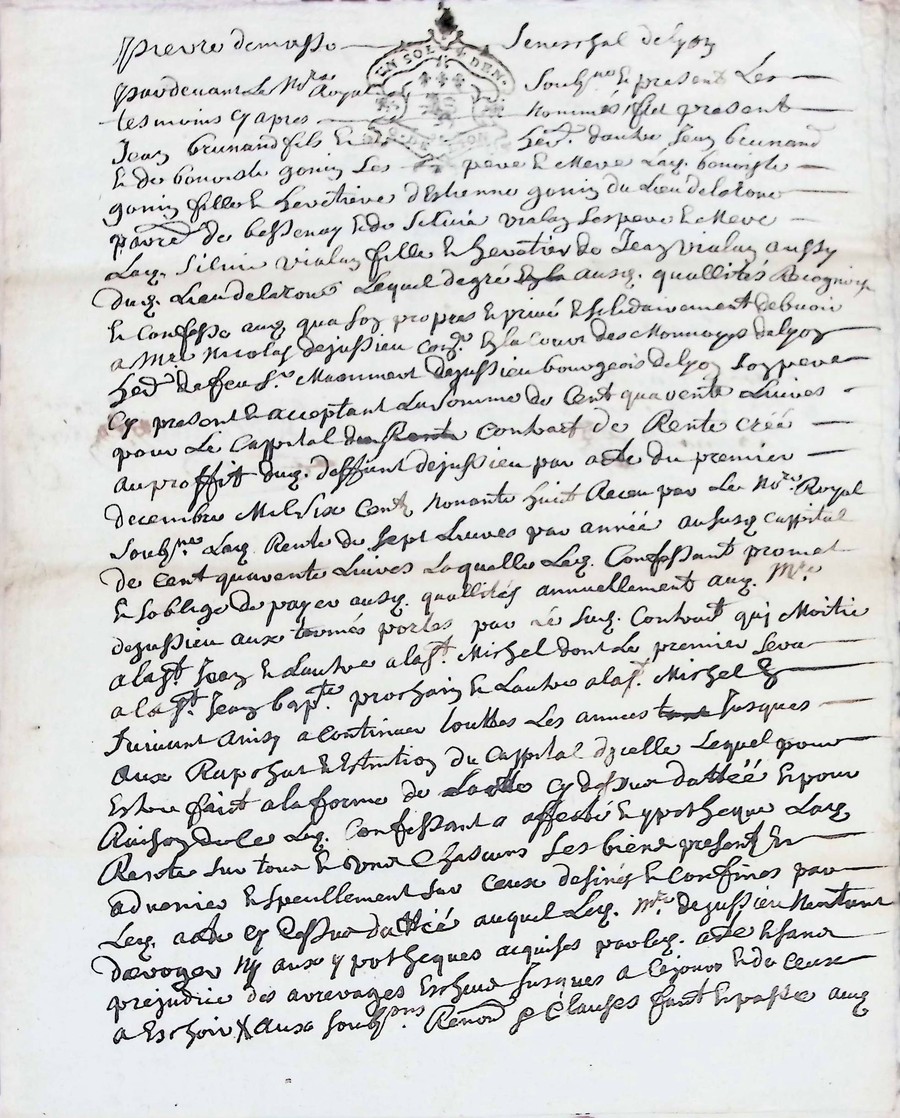 pierre demasso senerchal de Lyon
pardevant Le No.re Royal Soubs.ne & present Les
tesmoins cy apres nommés fut present
Jean brunand fils & her.r dautre Jean brunand
& de benoiste gonin Ses pere & Mere Laq. benoiste
gonin fille & heretiere d'Estienne gonin du Lieu delarone
parr.e de bessenay & de Silvie vialan Ses pere & Mere
Laq. Silvie vialan fille & heretier de Jean vialan aussy
dud. Lieu delarone Lequel degré ausq. quallités Recognoit
& Confesse auq. qua son propre & privé & solidairement debvoir
a M.e Nicolas dejussieu con.r En la Cour des Monnoyes de Lyon
her.r de feu S.r dejussieu bourgeois de Lyon Son pere
cy present & acceptant La Somme de Cent quarente Livres
pour Le Cappital du Rente contract de Rente créé
au proffit dud. deffunt dejussieu par acte du premier
decembre Mil Six Cent Nonante huit Receu par Le No.re Royal
Soubs.ne Laq. Rente de Sept Livres par année au susq. Cappital
de Cent quarente Livres Laquelle Led. Confessant promet
& Soblige de payer ausq. quallités annuellement auq. M.re
dejussieu aux termes portés par Le suq. Contract qui Moitié
a la S.t Jean & Lautre a la S.t Michel dont Le premier Sera
a la S.t Jean Bap.te prochain & Lautre a la S.t Michel
Suivant Ainsy a continuer touttes Les années Jusques
aux Rapchat & Extinction du Cappital dycelle Lequel pour
Estre fait a la forme de Lacte cy dessus datteé & pour
Raison de ce Led. Confessant a affecté & ypotheque Laq.
Rente Sur tous & uns Chascuns Ses biens present &
advenir & speciallement sur ceux desinés & Confinés par
Led. acte cy dessus datteé auquel Led. M.re dejussieu Nentend
deroger Ny aux ypotheques acquises par led. acte & sans
prejudice des arrerages Escheus Jusques a Ce jour & de ceux
a Eschoir aux Soubs.ns Renon.s & Clauses fait & passé auq.